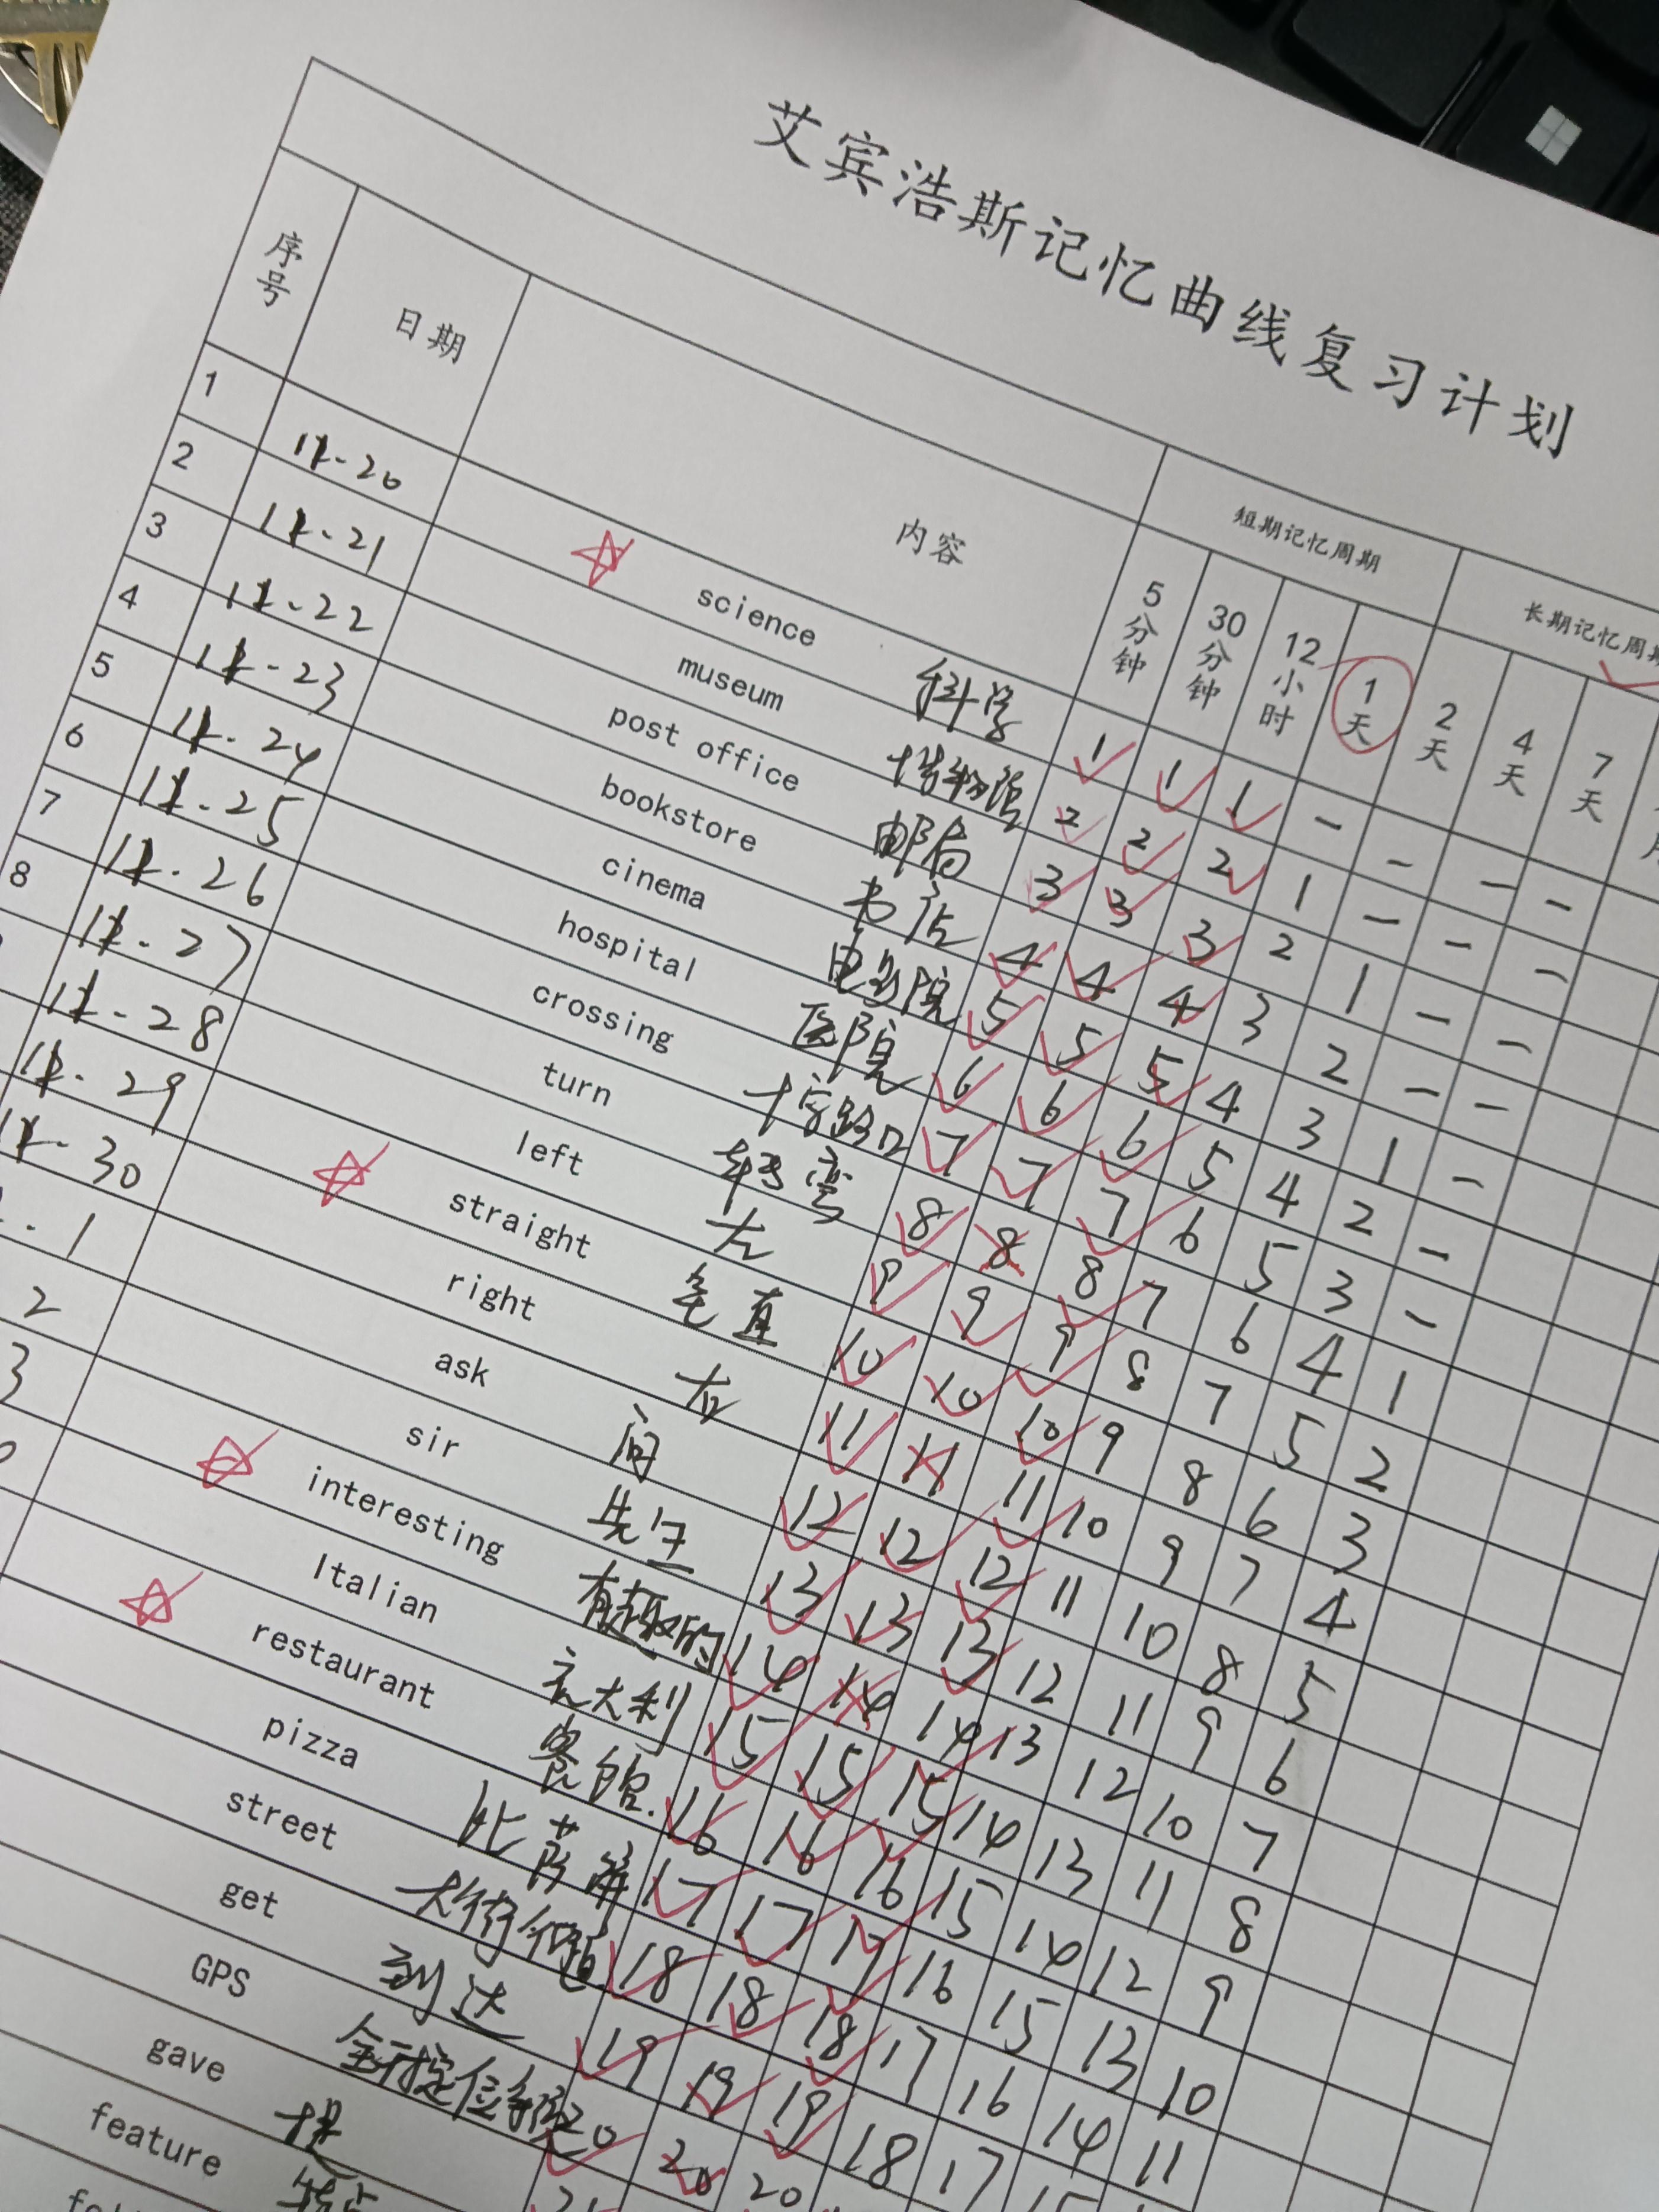 艾宾浩斯记忆曲线复习计划
序号 日期 内容 短期记忆周期 长期记忆周
5分钟 30分钟 12小时 1天 2天 4天 7天
1 20 science 科学 1 1 1 - - - -
2 21 museum 博物馆 2 2 2 1 - - -
3 22 post office 邮局 3 3 3 2 1 - -
4 23 bookstore 书店 4 4 4 3 2 - -
5 24 cinema 电影院 5 5 5 4 3 1 -
6 25 hospital 医院 6 6 6 5 4 2 -
7 26 crossing 十字路口 7 7 7 6 5 3 -
8 27 turn 转弯 8 8 8 7 6 4 1
28 left 左 9 9 9 8 7 5 2
29 straight 笔直 10 10 10 9 8 6 3
30 right 右 11 11 11 10 9 7 4
1 ask 问 12 12 12 11 10 8 5
2 sir 先生 13 13 13 12 11 9 6
3 interesting 有趣的 14 14 14 13 12 10 7
Italian 意大利 15 15 15 14 13 11 8
restaurant 餐馆 16 16 16 15 14 12 9
pizza 比萨饼 17 17 17 16 15 13 10
street 大街 18 18 18 17 16 14 11
get 到达 19 19 19 18 17 15
GPS 全球定位系统 20 20 20
gave
feature 特点